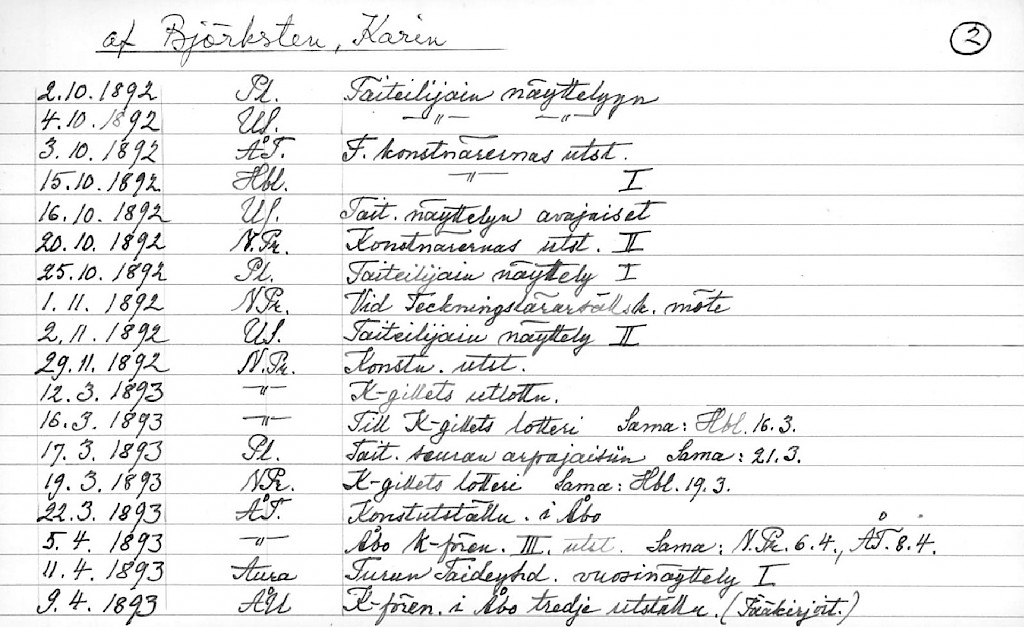 af Björksten, Karin 2
2.10.1892 Pl. Taiteilijain näyttelyyn
4.10.1892 US. —"— —"—
3.10.1892 ÅT. F. konstnärernas utst.
15.10.1892 Hbl. —"— I
16.10.1892 US. Tait. näyttelyn avajaiset
20.10.1892 N.Pr. Konstnärernas utst. II
25.10.1892 Pl. Taiteilijain näyttely I
1.11.1892 N.Pr. Vid Teckningslärarsällsk. möte
2.11.1892 US. Taiteilijain näyttely II
29.11.1892 N.Pr. Konstn. utst.
12.3.1893 —"— K-gillets utlottn.
16.3.1893 —"— Till K-gillets lotteri Sama: Hbl. 16.3.
17.3.1893 Pl. Tait. seuran arpajaisiin Sama: 21.3.
19.3.1893 N.Pr. K-gillets lotteri Sama: Hbl. 19.3.
22.3.1893 ÅT. Konstutställn. i Åbo
5.4.1893 —"— Åbo K-fören. III. utst. Sama: N.Pr. 6.4., ÅT. 8.4.
11.4.1893 Aura Turun Taideyhd. vuosinäyttely I
9.4.1893 ÅU K-fören. i Åbo tredje utställn. (Pääkirjoit.)